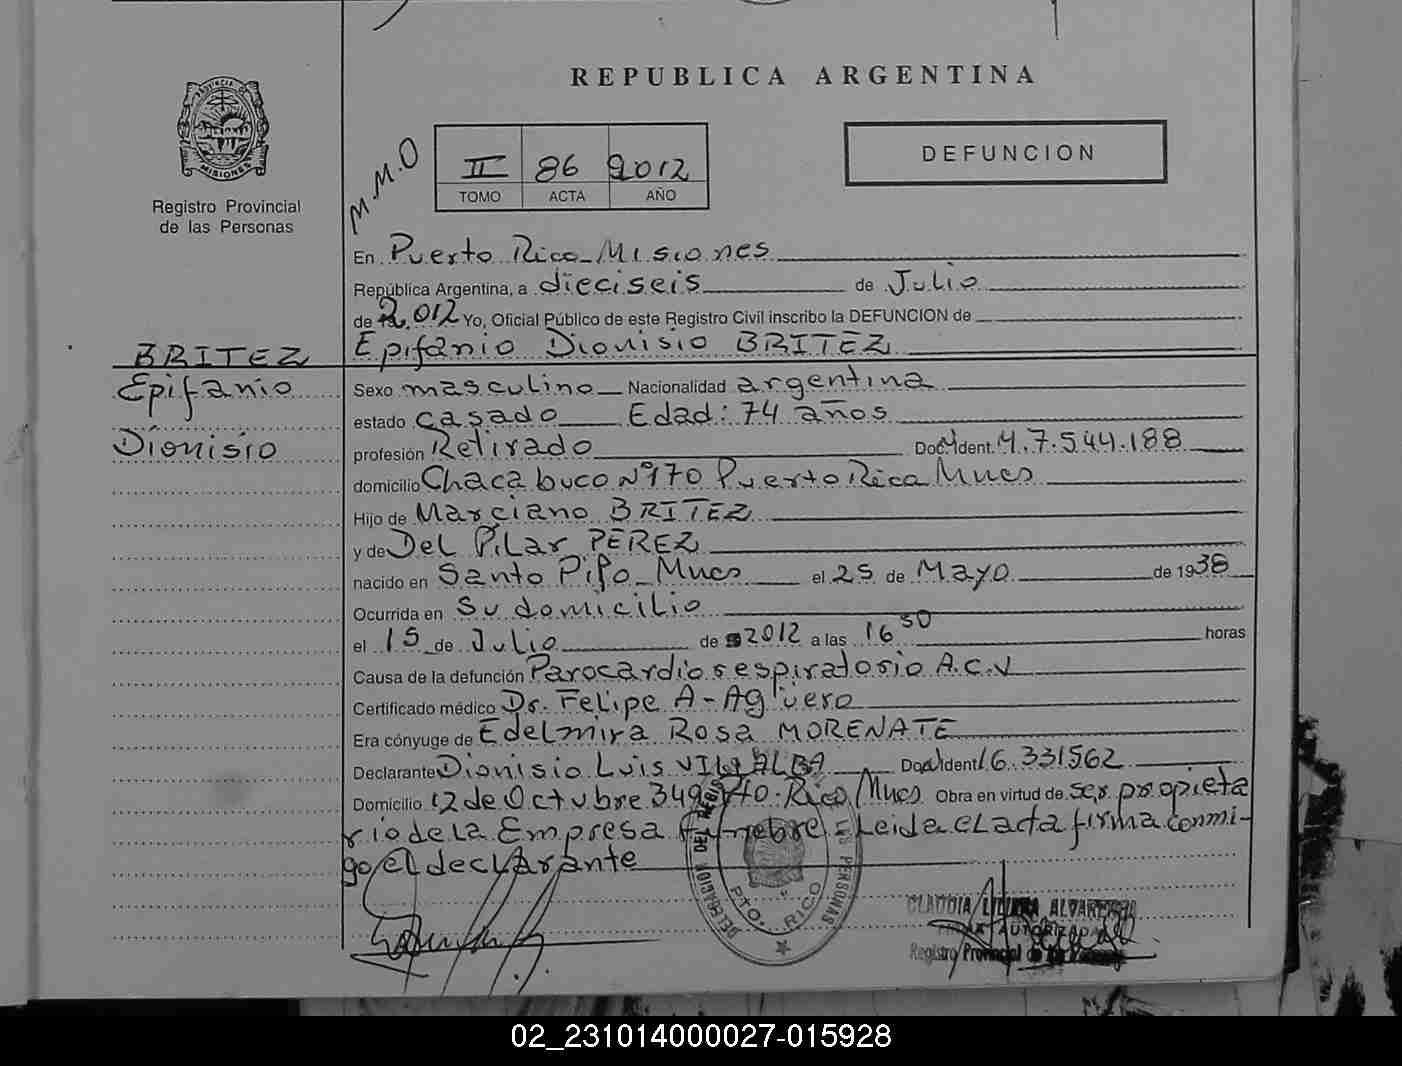 REPUBLICA ARGENTINA
PROVINCIA DE MISIONES
Registro Provincial
de las Personas
M.M.O
II 86 2012
TOMO ACTA AÑO
DEFUNCION
En Puerto Rico - Misiones
República Argentina, a dieciseis de Julio
de 2.012 Yo, Oficial Público de este Registro Civil inscribo la DEFUNCION de
Epifanio Dionisio BRITEZ
BRITEZ
Epifanio
Dionisio
Sexo masculino Nacionalidad argentina
estado casado Edad: 74 años
profesión Retirado Doc. Ident. M.7.544.188
domicilio Chacabuco Nº 170 Puerto Rico Mnes
Hijo de Marciano BRITEZ
y de Del Pilar PEREZ
nacido en Santo Pipo - Mnes el 25 de Mayo de 1938
Ocurrida en Su domicilio
el 15 de Julio de 2012 a las 16 50 horas
Causa de la defunción Parocardiorespiratorio A.C.V
Certificado médico Dr. Felipe A - Agüero
Era cónyuge de Edelmira Rosa MORENATE
Declarante Dionisio Luis VILLALBA Doc. Ident. 16.331562
Domicilio 12 de Octubre 349 Pto. Rico Mnes Obra en virtud de ser propieta
rio de la Empresa Funebre - Leida el acta firma conmi-
go el declarante
DELEGACION DEL REGISTRO LAS PERSONAS
PTO. RICO
CLAUDIA LILIANA
AUTORIZADA
Registro Provincial de las
02_231014000027-015928